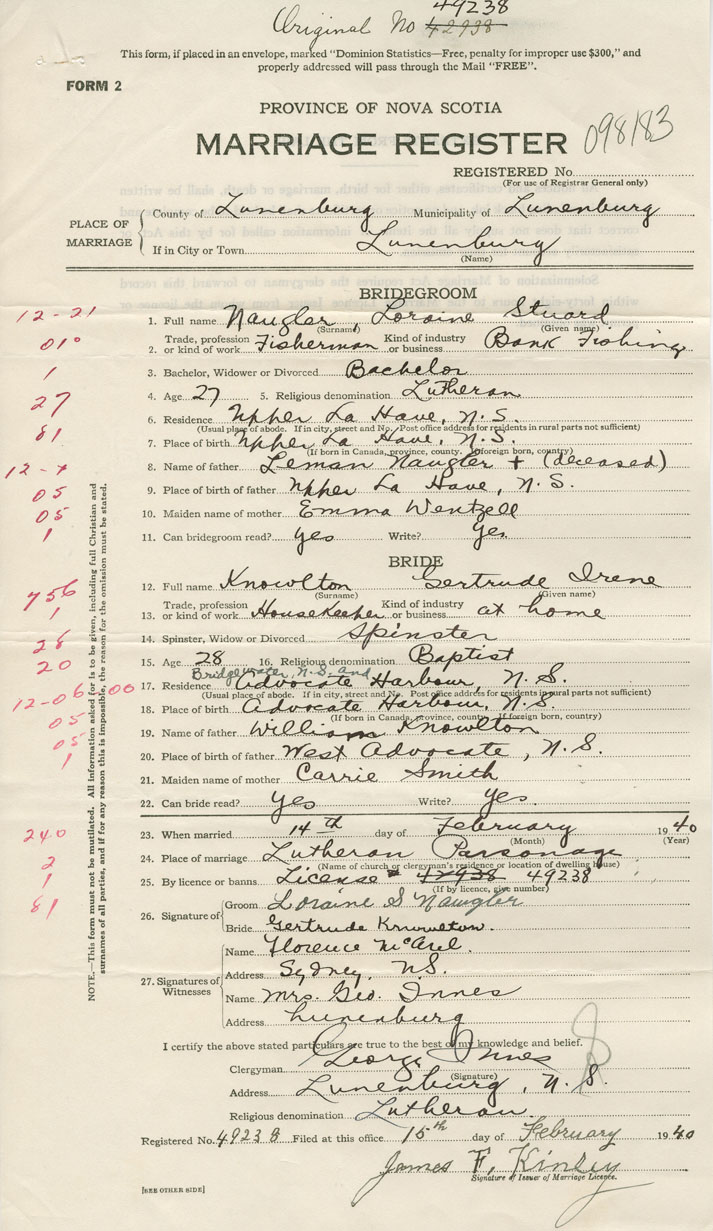 49238
Original No 42938
This form, if placed in an envelope, marked "Dominion Statistics—Free, penalty for improper use $300," and
properly addressed will pass through the Mail "FREE".
FORM 2
PROVINCE OF NOVA SCOTIA
MARRIAGE REGISTER 098183
REGISTERED No.
(For use of Registrar General only)
PLACE OF MARRIAGE
County of Lunenburg Municipality of Lunenburg
If in City or Town Lunenburg
(Name)
BRIDEGROOM
12-21 1. Full name Naugler, Loraine Stuard
(Surname) (Given name)
010 2. Trade, profession or kind of work Fisherman Kind of industry or business Bank Fishing
1 3. Bachelor, Widower or Divorced Bachelor
27 4. Age 27 5. Religious denomination Lutheran
81 6. Residence Upper La Have, N.S.
(Usual place of abode. If in city, street and No. Post office address for residents in rural parts not sufficient)
7. Place of birth Upper La Have, N.S.
(If born in Canada, province, county. If foreign born, country)
8. Name of father Leman Naugler + (deceased)
05 9. Place of birth of father Upper La Have, N.S.
05 10. Maiden name of mother Emma Wentzell
1 11. Can bridegroom read? yes Write? Yes.
BRIDE
756 12. Full name Knowlton Gertrude Irene
(Surname) (Given name)
1 13. Trade, profession or kind of work Housekeeper Kind of industry or business at home
28 14. Spinster, Widow or Divorced Spinster
20 15. Age 28 16. Religious denomination Baptist
Bridgewater, N.S. and
12-06 00 17. Residence Advocate Harbour, N.S.
(Usual place of abode. If in city, street and No. Post office address for residents in rural parts not sufficient)
05 18. Place of birth Advocate Harbour, N.S.
(If born in Canada, province, county. If foreign born, country)
05 19. Name of father William Knowlton
1 20. Place of birth of father West Advocate, N.S.
21. Maiden name of mother Carrie Smith
22. Can bride read? Yes Write? Yes.
240 23. When married 14th day of February 1940
(Month) (Year)
2 24. Place of marriage Lutheran Parsonage
(Name of church or clergyman's residence or location of dwelling house)
1 25. By licence or banns License # 42938 49238
(If by licence, give number)
81 26. Signature of Groom Loraine S Naugler
Bride Gertrude Knowlton.
27. Signatures of Witnesses
Name Florence
Address Sydney, N.S.
Name Mrs. Geo. Innes
Address Lunenburg
I certify the above stated particulars are true to the best of my knowledge and belief.
Clergyman George Innes
(Signature)
Address Lunenburg, N.S.
Religious denomination Lutheran.
Registered No. 49238 Filed at this office 15th day of February 1940
James F. Kinley
Signature of Issuer of Marriage Licence.
[SEE OTHER SIDE]
NOTE.—This form must not be mutilated. All information asked for is to be given, including full Christian and
surnames of all parties, and if for any reason this is impossible, the reason for the omission must be stated.